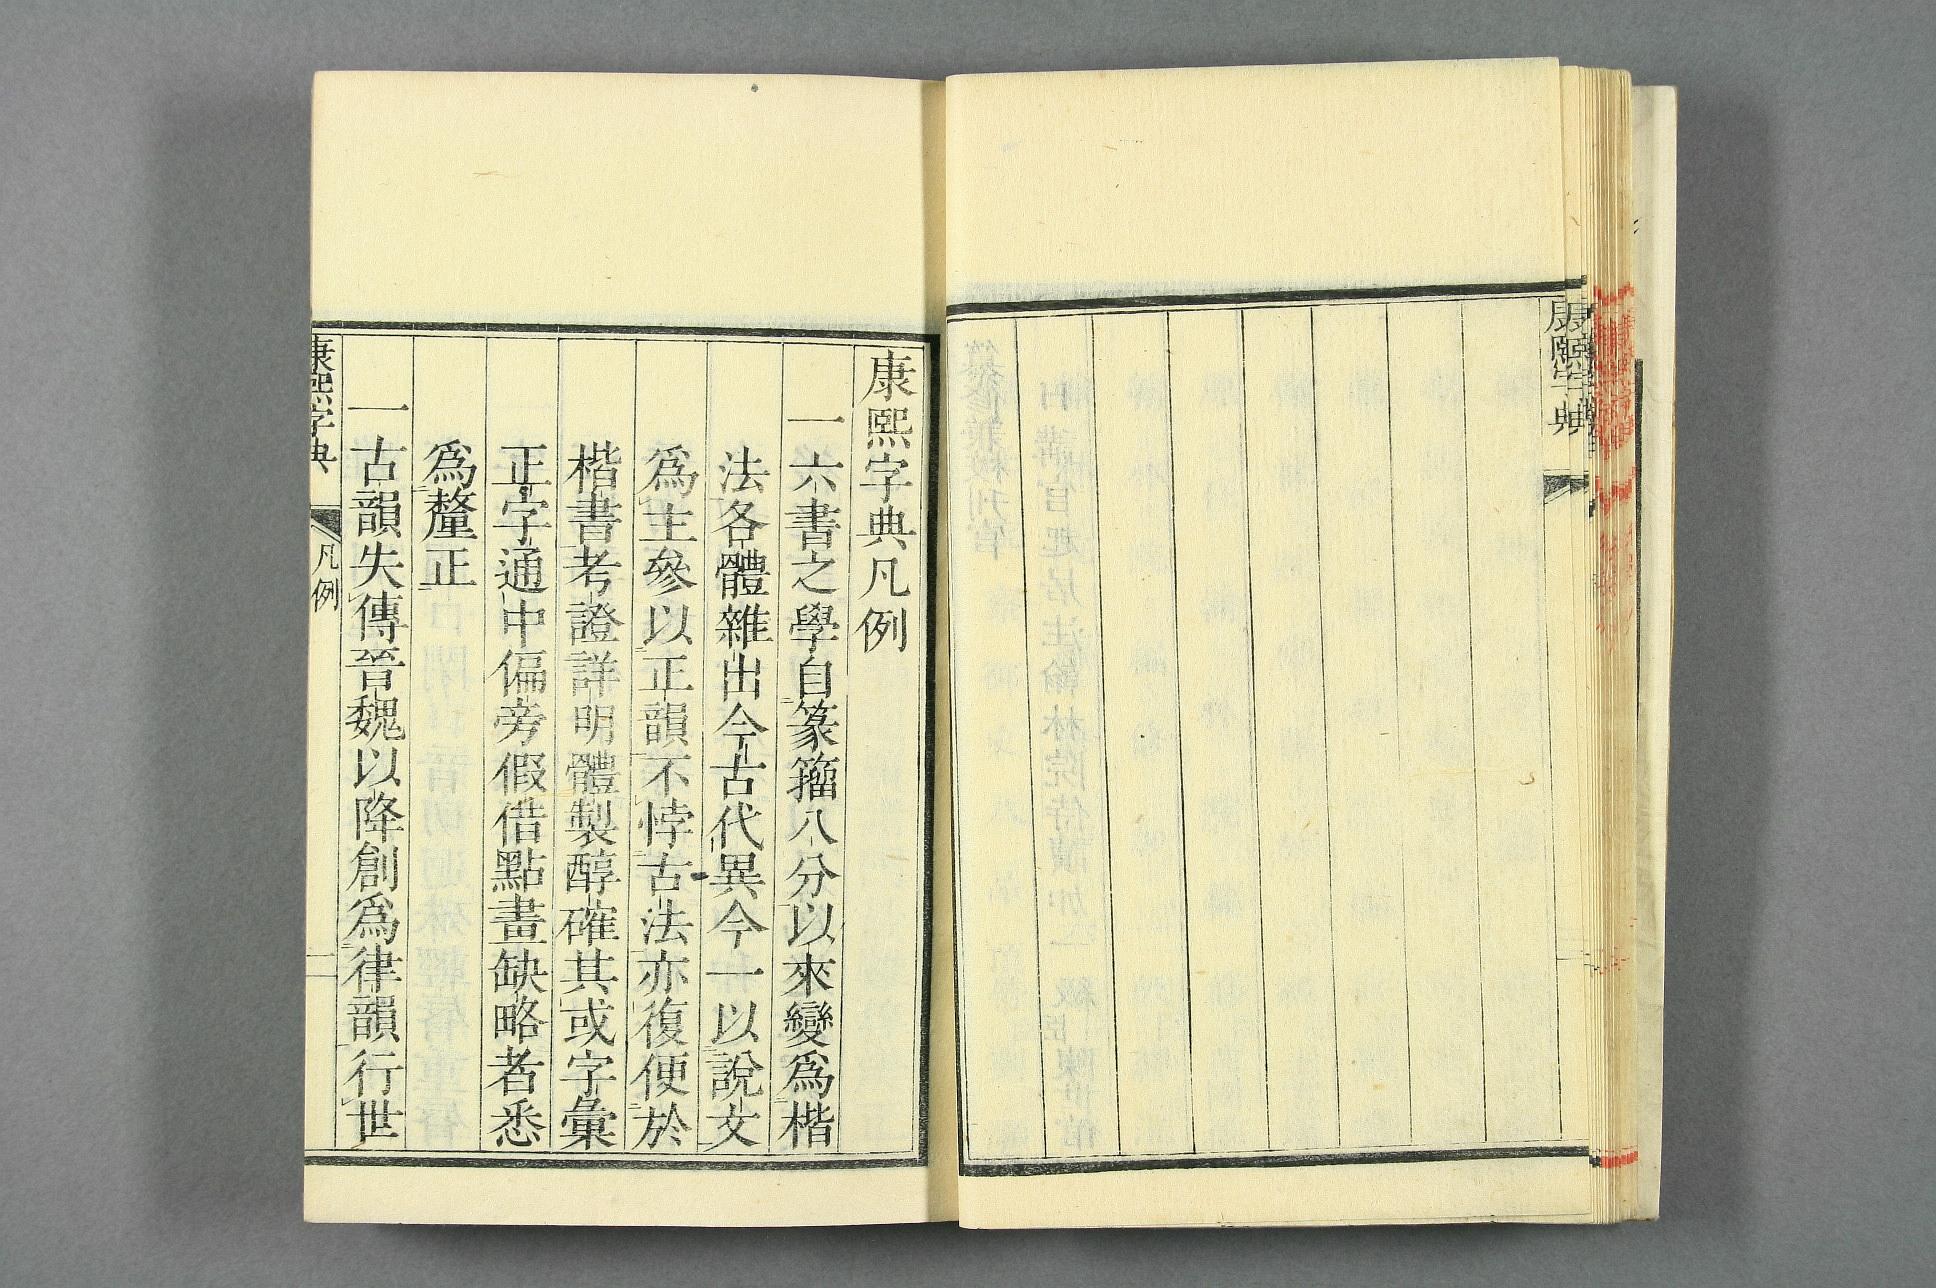 康熙字典
康熙字典凡例
一六書之學自篆籀八分以來變爲楷
法各體雜出今古代異今一以說文
爲主參以正韻不悖古法亦復便於
楷書考證詳明體製醇確其或字彙
正字通中偏旁假借點畫缺略者悉
爲釐正
一古韻失傳晉魏以降創爲律韻行世
康熙字典
凡例
一